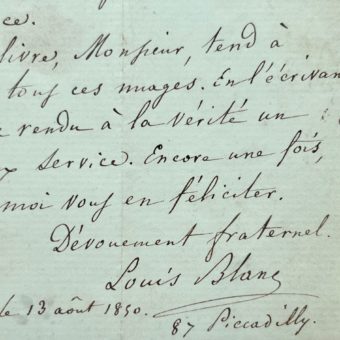 ce.
livre, Monsieur, tend à
tous ces nuages. En l'écrivan
rendu à la Vérité un
service. Encore une fois,
moi vous en féliciter.
Dévouement fraternel.
Louis Blanc
le 13 août 1850.
87 Piccadilly.